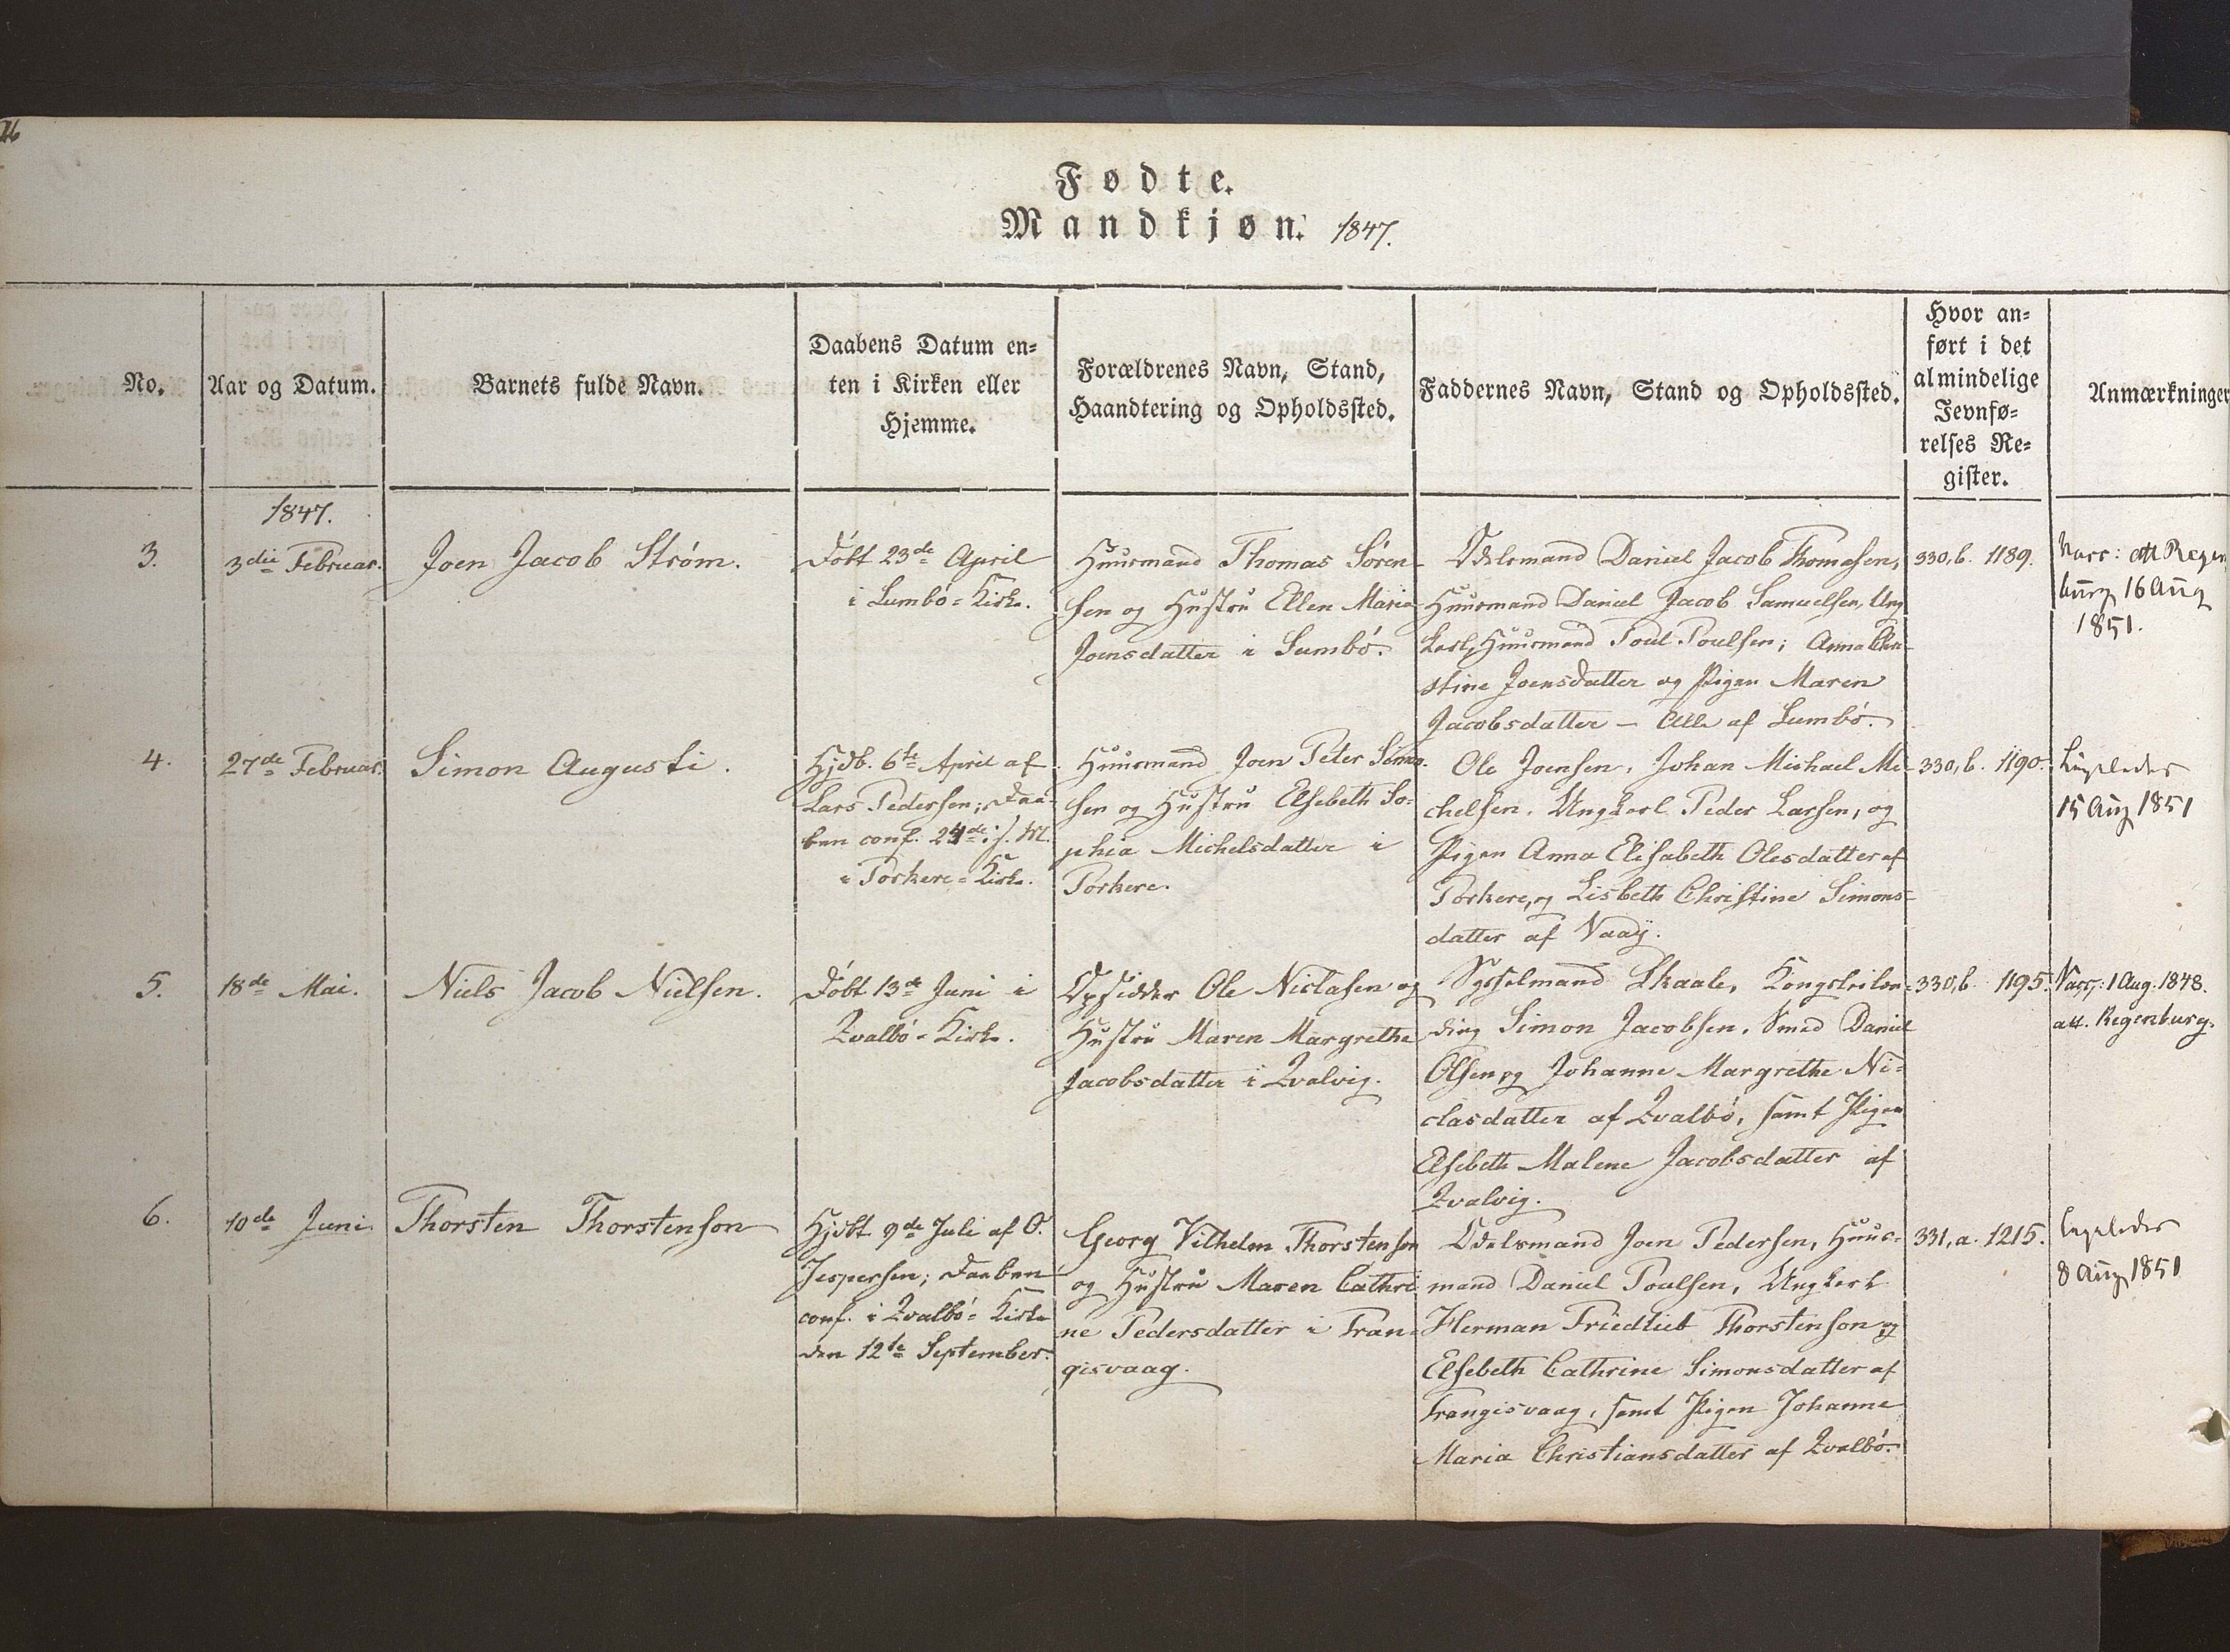 Fødte.
Mandkjøn. 1847.
No.
Aar og Datum.
Barnets fulde Navn.
Daabens Datum en-
ten i Kirken eller
Hjemme.
Forældrenes Navn, Stand,
Haandtering og Opholdssted.
Faddernes Navn, Stand og Opholdssted.
Hvor an-
ført i det
almindelige
Jevnfø-
relses Re-
gister.
Anmærkninger
1847.
3.
3die Februar.
Joen Jacob Strøm.
Døbt 23de April
i Sumbø-Kirke.
Huusmand Thomas Søren-
sen og Hustru Ellen Maria
Joensdatter i Sumbø.
Odelsmand Daniel Jacob Thomasen,
Huusmand Daniel Jacob Samuelsen, Ung
karl, Huusmand Poul Poulsen; Anna Chri-
stine Joensdatter og Pigen Maren
Jacobsdatter – Alle af Sumbø.
330,b. 1189.
Vacc: att Regen
burg 16 Aug
1851.
4.
27de Februar.
Simon Augusti.
Hjdb. 6te April af
Lars Pedersen; Daa-
ben conf. 24de s. M.
i Porkere-Kirke.
Huusmand Joen Peter Simon-
sen og Hustru Elsebeth So-
phia Michelsdatter i
Porkere.
Ole Joensen, Johan Michael Mi-
chelsen, Ungkarl Peder Larsen, og
Pigen Anna Elisabeth Olesdatter af
Porkere, og Lisbeth Christine Simons-
datter af Vaag.
330,b. 1190.
15 Aug 1851
5.
18de Mai.
Niels Jacob Nielsen.
Døbt 13de Juni i
Qvalbø-Kirke.
Opsidder Ole Niclasen og
Hustru Maren Margrethe
Jacobsdatter i Qvalvig.
Sysselmand Skaale, Kongsleilæn-
ding Simon Jacobsen, Smed Daniel
Olsen og Johanne Margrethe Ni-
clasdatter af Qvalbø, samt Pigen
Elsebeth Malene Jacobsdatter af
Qvalvig.
330,b. 1195.
Vacc: 1 Aug. 1848.
att. Regenburg.
6.
10de Juni.
Thorsten Thorstenson
Hjdbt 9de Juli af O.
Jespersen; Daaben
conf. i Qvalbø-Kirke
den 12te September.
Georg Vilhelm Thorstenson
og Hustru Maren Cathri
ne Pedersdatter i Tran-
gisvaag.
Odelsmand Joen Pedersen, Huus-
mand Daniel Poulsen, Ungkarl
Herman Friedlieb Thorstenson og
Elsebeth Cathrine Simonsdatter af
Trangisvaag, samt Pigen Johanne
Maria Christiansdatter af Qvalbø.
331,a. 1215.
8 Aug 1851